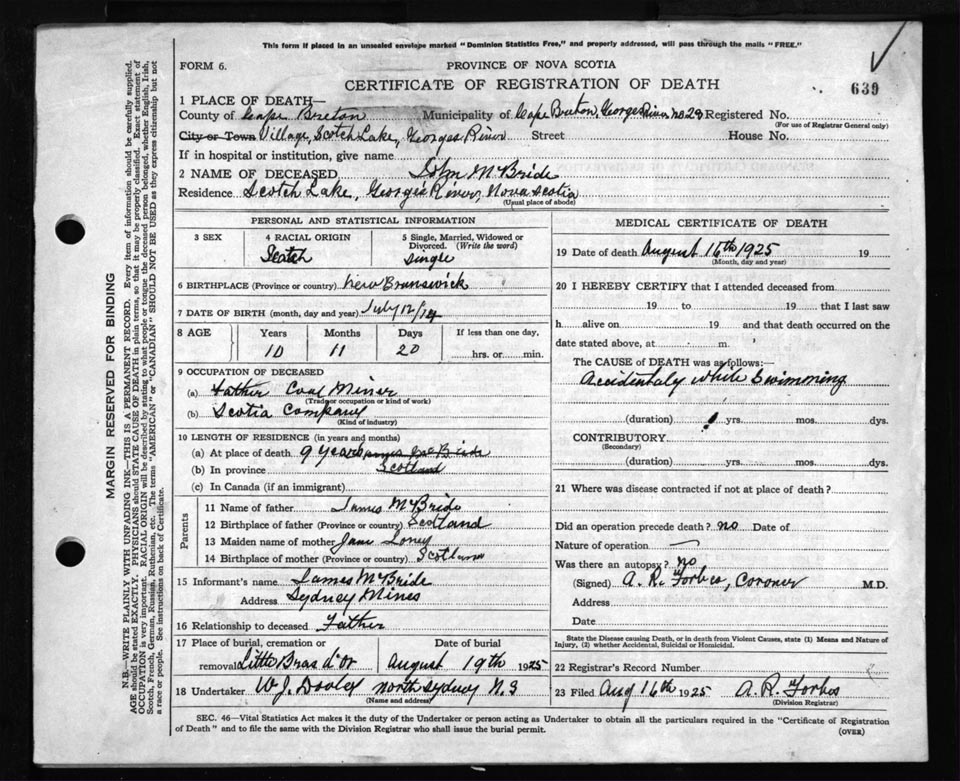 This form if placed in an unsealed envelope marked "Dominion Statistics Free," and properly addressed, will pass through the mails "FREE."
FORM 6.
PROVINCE OF NOVA SCOTIA
CERTIFICATE OF REGISTRATION OF DEATH
639
1 PLACE OF DEATH—
County of Cape Breton Municipality of Cape Breton, Georges River No 29 Registered No.
(For use of Registrar General only)
City or Town Village, Scotch Lake, Georges River Street House No.
If in hospital or institution, give name
2 NAME OF DECEASED John McBride
Residence Scotch Lake, Georges River, Nova Scotia
(Usual place of abode)
PERSONAL AND STATISTICAL INFORMATION
3 SEX
4 RACIAL ORIGIN
Scotch
5 Single, Married, Widowed or Divorced. (Write the word)
Single
6 BIRTHPLACE (Province or country) New Brunswick
7 DATE OF BIRTH (month, day and year) July 12/14
8 AGE Years Months Days If less than one day,
10 11 20 hrs. or min.
9 OCCUPATION OF DECEASED
(a) Father Coal Miner
(Trade or occupation or kind of work)
(b) Scotia Company
(Kind of industry)
10 LENGTH OF RESIDENCE (in years and months)
(a) At place of death 9 years James McBride
(b) In province Scotland
(c) In Canada (if an immigrant)
Parents
11 Name of father James McBride
12 Birthplace of father (Province or country) Scotland
13 Maiden name of mother Jane
14 Birthplace of mother (Province or country) Scotland
15 Informant's name James McBride
Address Sydney Mines
16 Relationship to deceased Father
17 Place of burial, cremation or Date of burial
removal Little Bras d'Or August 19th 1925
18 Undertaker W. J. Dooley North Sydney N.S
(Name and address)
MEDICAL CERTIFICATE OF DEATH
19 Date of death August 16th 1925 19
(Month, day and year)
20 I HEREBY CERTIFY that I attended deceased from
19 to 19 that I last saw
h alive on 19 and that death occurred on the
date stated above, at m.
The CAUSE of DEATH was as follows:
Accidentaly while Swimming
(duration) yrs. mos. dys.
CONTRIBUTORY
(Secondary)
(duration) yrs. mos. dys.
21 Where was disease contracted if not at place of death?
Did an operation precede death? no Date of
Nature of operation —
Was there an autopsy? no
(Signed) A. R. Forbes, Coroner M.D.
Address
Date
State the Disease causing Death, or in death from Violent Causes, state (1) Means and Nature of Injury, (2) whether Accidental, Suicidal or Homicidal.
22 Registrar's Record Number
23 Filed Aug 16th 1925 A. R. Forbes
(Division Registrar)
SEC. 46—Vital Statistics Act makes it the duty of the Undertaker or person acting as Undertaker to obtain all the particulars required in the "Certificate of Registration
of Death" and to file the same with the Division Registrar who shall issue the burial permit.
(OVER)
MARGIN RESERVED FOR BINDING
N.B.—WRITE PLAINLY WITH UNFADING INK—THIS IS A PERMANENT RECORD. Every item of information should be carefully supplied.
AGE should be stated EXACTLY. PHYSICIANS should STATE CAUSE OF DEATH in plain terms, so that it may be properly classified. Exact statement of
OCCUPATION is very important. RACIAL ORIGIN will be described by stating to what people or tongue the deceased person belonged, whether English, Irish,
Scotch, French, German, Russian, Ruthenian, etc. The terms "AMERICAN" or "CANADIAN" SHOULD NOT BE USED as they express citizenship but not
a race or people. See instructions on back of Certificate.